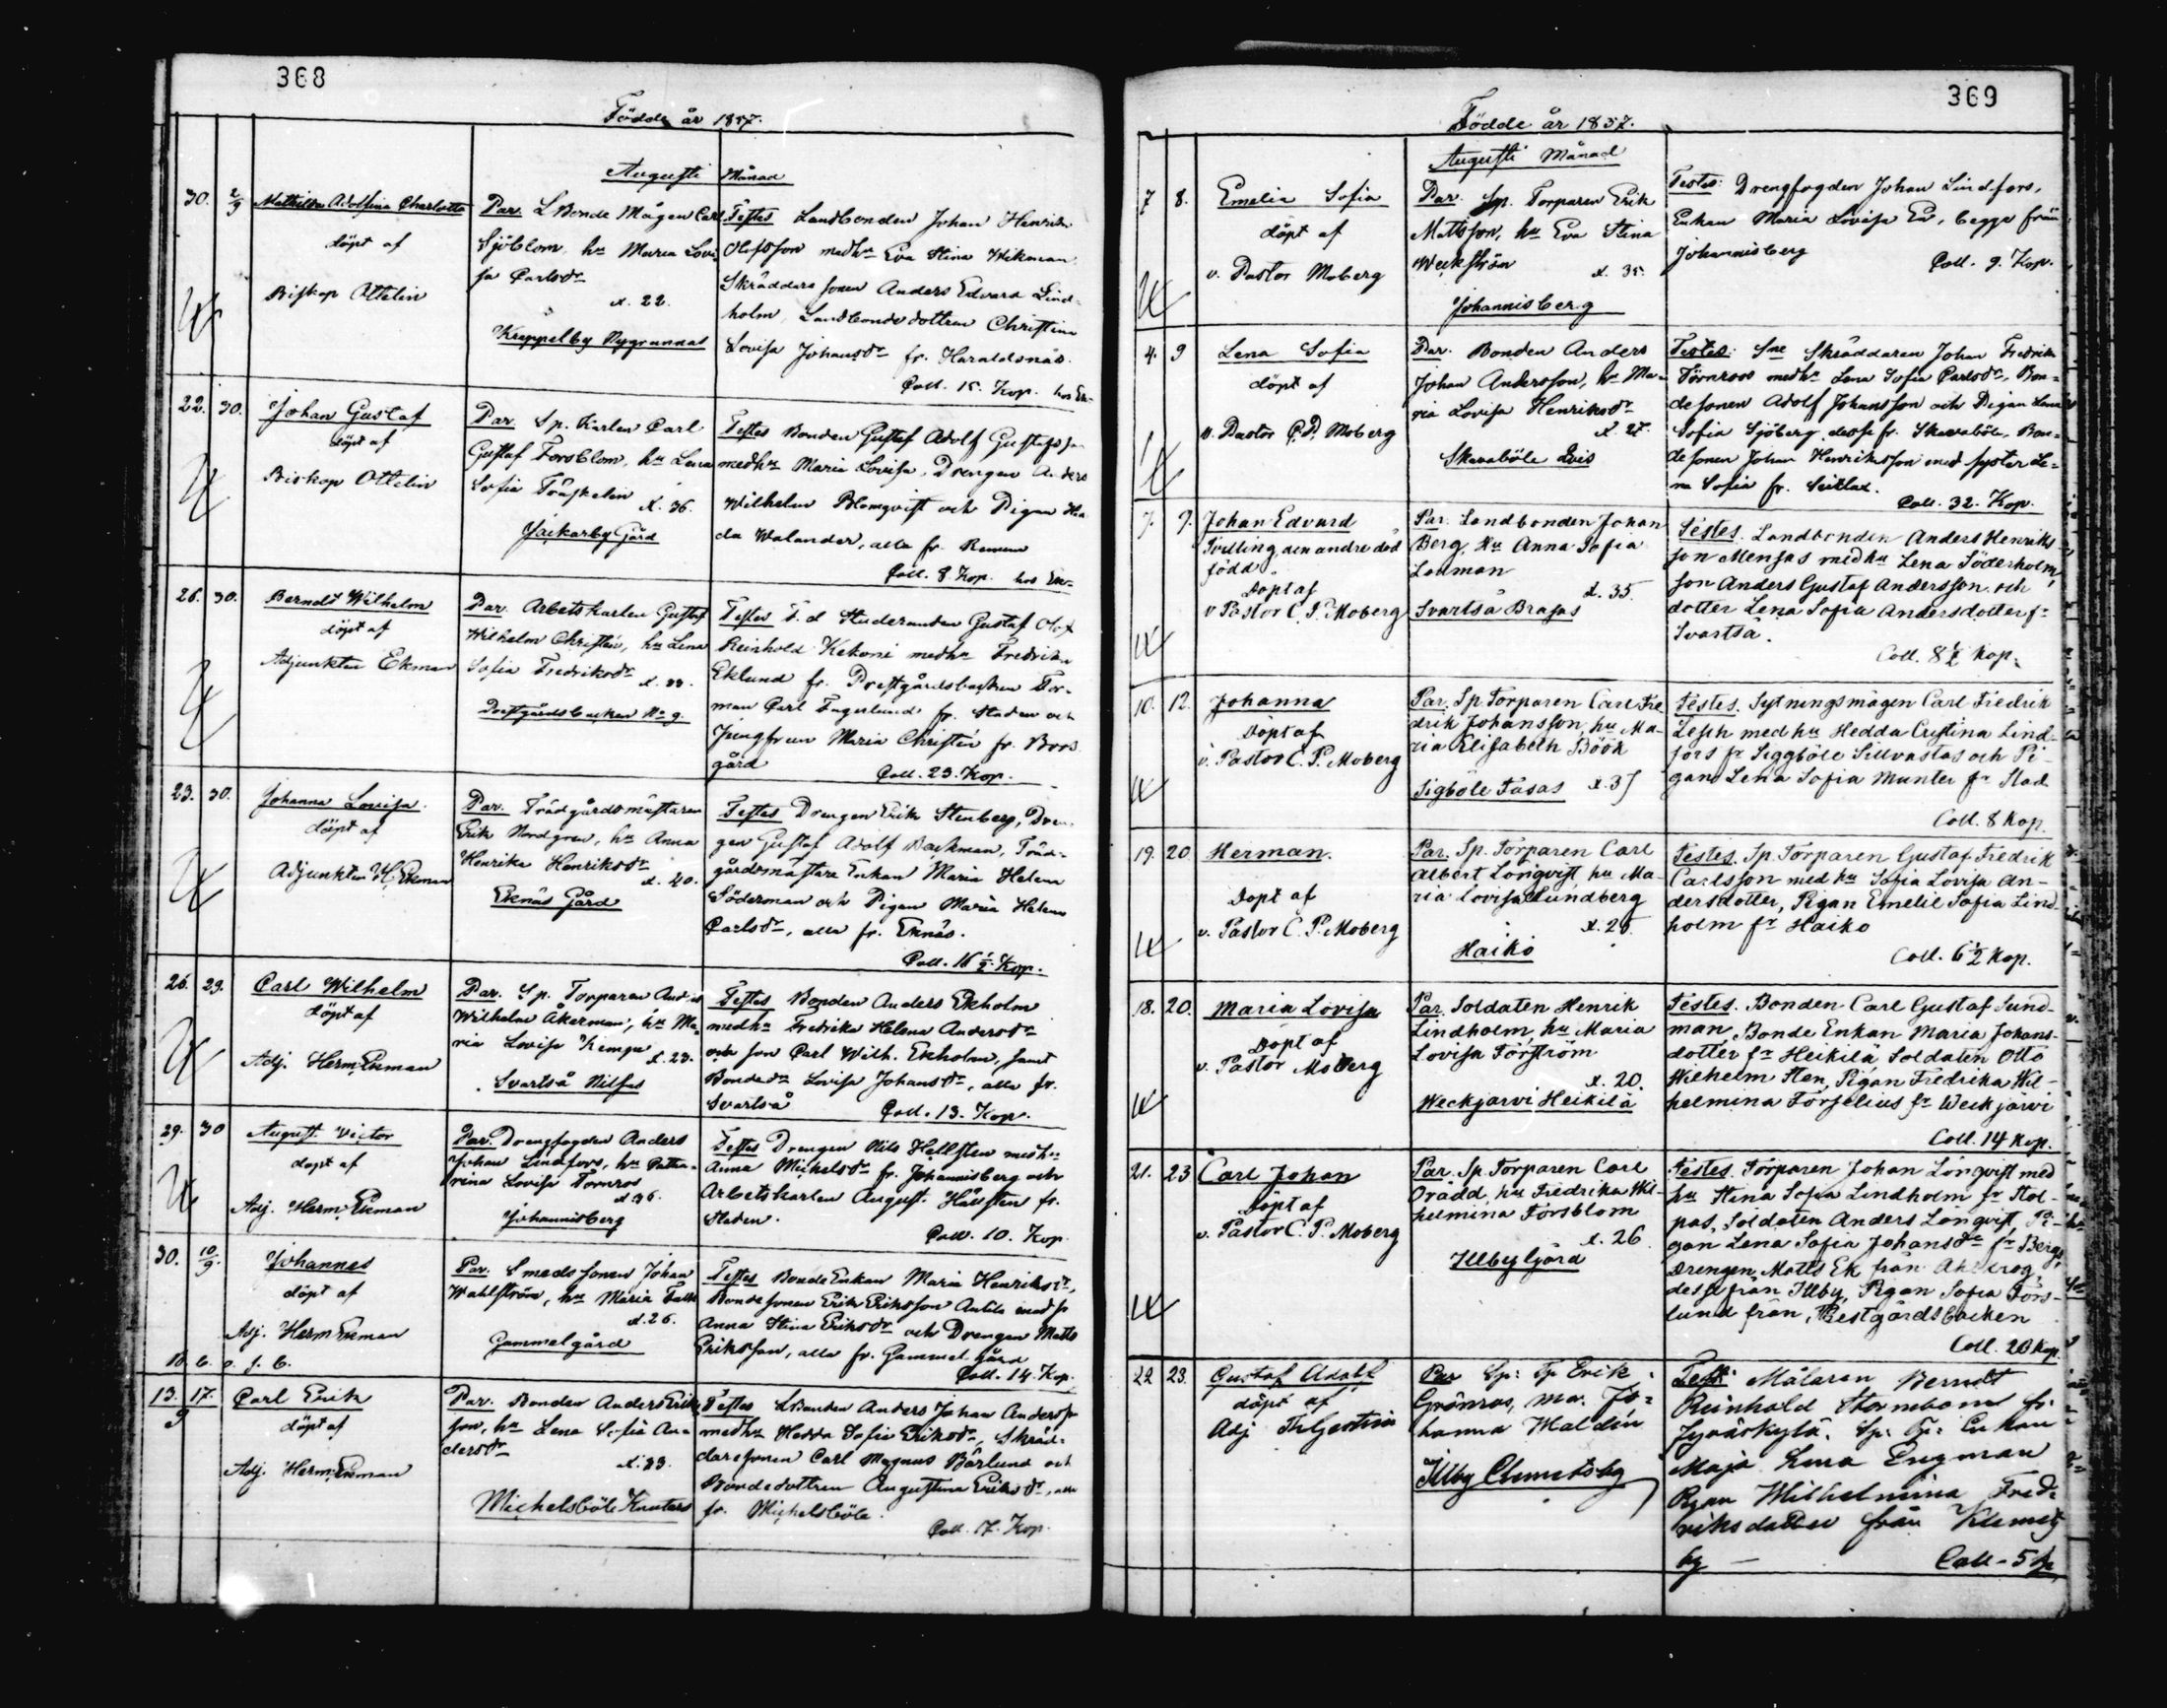 368
Födde år 1857.
Augusti Månad
30. 2/9 Mathilda Adolfina Charlotta
döpt af
Biskop Ottelin
Par. L Bonde Mågen Carl
Sjöblom, hu Maria Lovi-
sa Carlsdr
x. 22.
Kroppelby Nygrannas
Testes Landbonden Johan Henrik
Olofsson medhu Eva Stina Wikman
Skräddare sonen Anders Edvard Lind-
holm, Landbonde dottren Christina
Lovisa Johansdr fr. Haraldsnäs.
Coll. 15. Kop.
22. 30. Johan Gustaf
döpt af
Biskop Ottelin
Par. Sp. Karlen Carl
Gustaf Forsblom, hu Lena
Sofia Träskelin
x. 36.
Jackarby Gård
Testes Bonden Gustaf Adolf Gustafsson
medhu Maria Lovisa, Drengen Anders
Wilhelm Blomqvist och Pigan Hed
da Walander, alla fr.
Coll. 8 Kop.
26. 30. Berndt Wilhelm
döpt af
Adjunkten Ekman
Par. Arbetskarlen Gustaf
Wilhelm Christén, hu Lena
Sofia Fredriksdr
x. 33.
Prestgårdsbacken No 9.
Testes F. d Studeranden Gustaf Olof
Reinhold Kekoni medhu Fredrika
Eklund fr. Prestgårdsbacken For-
man Carl Fagerlund fr. Staden och
Jungfrun Maria Christén fr. Borg
gård
Coll. 23. Kop.
23. 30. Johanna Lovisa.
döpt af
Adjunkten H. Ekman
Par. Trädgårdsmästaren
Erik Nordgren, hu Anna
Henrika Henriksdr
x. 40.
Eknäs Gård
Testes Drengen Erik Stenberg, Dren-
gen Gustaf Adolf Backman, Träd-
gårdsmästare Enkan Maria Helena
Söderman och Pigan Maria Helena
Carlsdr, alla fr. Eknäs.
Coll. 16 1/2 Kop.
26. 29. Carl Wilhelm
döpt af
Adj. Herm. Ekman
Par. Sp. Torparen Anders
Wilhelm Akerman, hu Ma-
ria Lovisa Kempe
x. 23.
Svartså Nilsas
Testes Bonden Anders Ekholm
medhu Fredrika Helena Andersdr
och son Carl Wilh. Ekholm, samt
Bondedr Lovisa Johansdr, alla fr.
Svartså
Coll. 13. Kop.
29. 30 August Victor
döpt af
Adj. Herm. Ekman
Par. Drengfogden Anders
Johan Lindfors, hu Catha-
rina Lovisa Törnros
x 36.
Johannisberg
Testes Drengen Nils Hellsten medhu
Anna Michelsdr fr. Johannisberg och
Arbetskarlen August Hällsten fr.
Staden.
Coll. 10. Kop
30. 10/9. Johannes
döpt af
Adj. Herm Ekman
Par. Smeds sonen Johan
Wahlström, hu Maria Falk
x. 26.
Gammelgård
Testes Bonde Enkan Maria Henriksdr,
Bonde sonen Erik Eriksson Antila med sr
Anna Stina Eriksdr och Drengen Matts
Eriksson, alla fr. Gammelgård
Coll. 14. Kop.
18. 6. o. s. 6.
13. 17. Carl Erik
9
döpt af
Adj. Herm. Ekman
Par. Bonden Anders Eriks
son, hu Lena Sofia An-
dersdr
x. 33.
Michelsböle Knuters
Testes L Bonden Anders Johan Andersson
medhu Hedda Sofia Eriksdr, Skräd-
daresonen Carl Magnus Bärlund och
Bondedottren Augustina Eriksdr, alla
fr. Michelsböle.
Coll. 17. Kop.
369
Födde år 1857.
Augusti Månad
7 8. Emelia Sofia
döpt af
v. Pastor Moberg
Par. Sp. Torparen Erik
Mattsson, hu Eva Stina
Weckström
x. 35.
Johannisberg
Testes: Drengfogden Johan Lindfors,
Enkan Maria Lovisa Ek, begge från
Johannisberg
Coll. 9. Kop.
4. 9 Lena Sofia
döpt af
v. Pastor C. P. Moberg
Par. Bonden Anders
Johan Andersson, hu Ma-
ria Lovisa Henriksdr
x 27.
Skavaböle Lvis
Testes: Skräddaren Johan Fredrik
Törnroos medhu Lena Sofia Carlsdr, Bon-
de sonen Adolf Johansson och Pigan Lena
Sofia Sjöberg, desse fr. Skavaböle, Bon-
de sonen Johan Henriksson med syster Le-
na Sofia fr. Seitlax.
Coll. 32. Kop.
7. 9. Johan Edvard
Tvilling, den andre död
född.
Döpt af
v Pastor C. P. Moberg
Par. Landbonden Johan
Berg, Hu Anna Sofia
Lohman
x. 35.
Svartså Brasas
Testes. Landbonden Anders Henriks
son Mensas med hu Lena Söderholm,
son Anders Gustaf Andersson och
dotter Lena Sofia Andersdotter fr
Svartså.
Coll. 8 1/2 Kop.
10. 12. Johanna
Döpt af
v. Pastor C. P. Moberg
Par. Sp Torparen Carl Fre
drik Johansson, hu Ma-
ria Elisabeth Böök
Sigböle Fasas x. 35
Testes. Sytningsmågen Carl Fredrik
Lesch med hu Hedda Cristina Lind-
fors fr Siggböle Sillvastas och Pi-
gan Lena Sofia Munter fr Stad
Coll. 8 Kop.
19. 20 Herman.
Döpt af
v. Pastor C. P. Moberg
Par. Sp. Torparen Carl
Albert Lönqvist hu Ma-
ria Lovisa Lundberg
x. 26.
Haiko
Testes. Sp. Torparen Gustaf Fredrik
Carlsson med hu Sofia Lovisa An-
dersdotter, Pigan Emelie Sofia Lind-
holm fr Haiko
Coll. 6 1/2 Kop.
18. 20. Maria Lovisa
Döpt af
v. Pastor Moberg
Par. Soldaten Henrik
Lindholm, hu Maria
Lovisa Förström
x. 20.
Weckjärvi Heikilä
Testes. Bonden Carl Gustaf Sund-
man, Bonde Enkan Maria Johans-
dotter fr Heikilä Soldaten Otto
Wilhelm Sten, Pigan Fredrika Wil-
helmina Forselius fr Weckjärvi
Coll. 14 Kop.
21. 23 Carl Johan
Döpt af
v. Pastor C. P. Moberg
Par. Sp. Torparen Carl
Orädd, hu Fredrika Wil-
helmina Forsblom
x. 26
Illby Gård
Testes. Torparen Johan Lönqvist med
hu Stina Sofia Lindholm fr Stol-
pas, Soldaten Anders Lönqvist, Pi-
gan Lena Sofia Johansdr fr Berga,
Drengen Matts Ek från
desse från Illby, Pigan Sofia Fors-
lund från, Prestgårdsbacken
Coll. 20 Kop.
22 23. Gustaf Adolf
döpt af
Adj
Par Sp: Tp Erik
Grönroos, Mor. Jo-
hanna Waldin
Illby Clemetsby
Test: Målaren Berndt
Reinhold fr.
Jyväskylä. Sp: Tp: Enkan
Maja Lena Engman
Pigan Wilhelmina Fred-
riksdotter från Klemets
by —
Coll. - 5 k